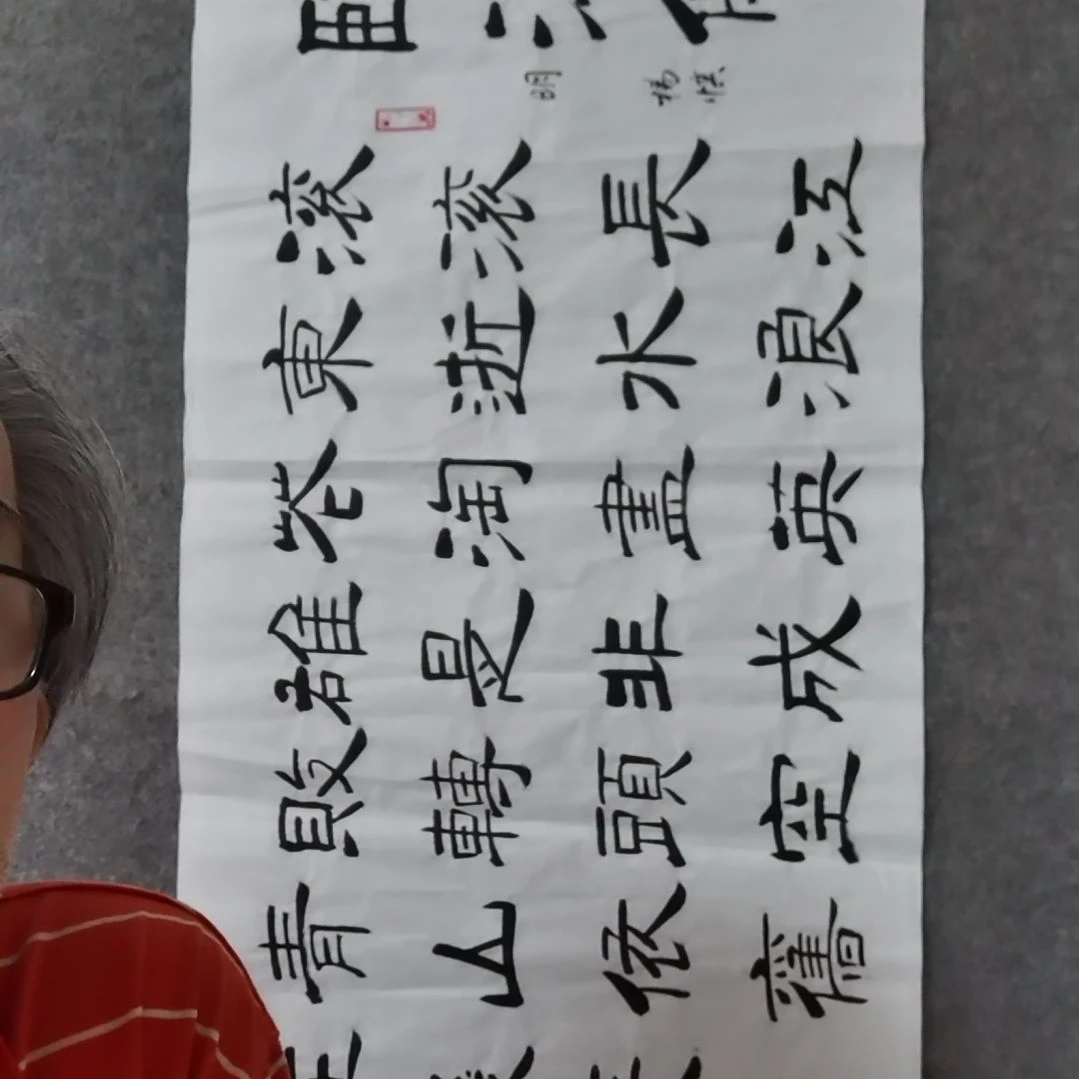 明 楊慎
滾滾長江
東逝水浪
花淘盡英
雄是非成
敗轉頭空
青山依舊